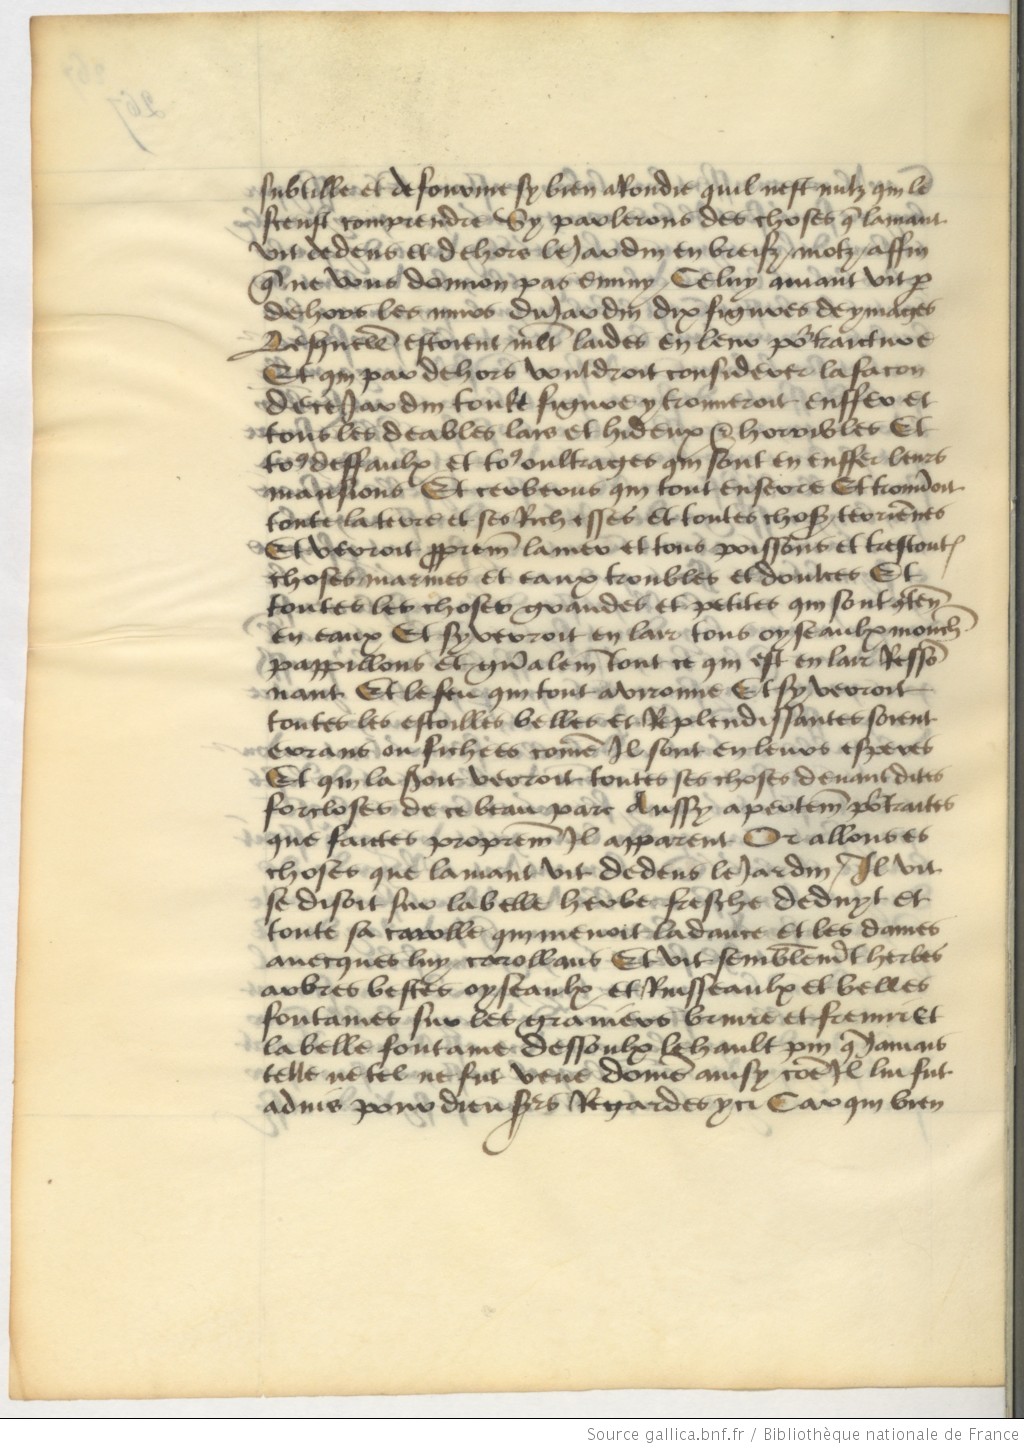 subtille et de forme sy bien arondie quil nest nulz qui le
sceust comprendre Sy parlerons des choses q̃ lamant
vit dedens et dehors le Jardin en breifz motz affin
q̃ ne vous donnon pas ennuy Celuy amant vit p
dehors les murs du Jardin dix figures de ymages
Lesquelz estoient mlt laides en leur po͛traicture
Et qui par dehors vouldroit considerer la facon
de ce Jardin toute figure y trouueroit enffer et
tous les deables lais et hideux & horribles Et
to9 deffaulx et to9 oultrages qui sont en enffer leurs
mansions Et cerberus qui tout enserre Et trouu͛oit
toute la terre et ses Richesses et toutes chos͛ terriẽnes
Et verroit ꝓprem̃ la mer et tous poissons et trestout͛
choses marines et eaux troubles et doulces Et
toutes les choses grandes et petites qui sont
en eaux Et sy verroit en lair tous oyseaulx mouch͛
pappillons et gñalem̃ tout ce qui est en lair Ressõ
nant Et le feu qui tout avironne Et sy verroit
toutes les estoilles belles et Replendissantes soient
errans ou fichees com̃e Jl sont en leurs esperes
Et qui la s͛oit verroit toutes ses choses deuant dites
forcloses de ce beau parc Aussy apertem̃ po͛traites
que faictes proprem̃ Jl apparent Or allons es
choses que lamant vit dedens le Jardin / Il vit
se disoit sur la belle herbe fresche deduyt et
toute sa carolle qui menoit la dance et les dames
auecques luy carollans Et vit semblem̃t herbes
arbres bestes oyseaulx et Ruisseaulx et belles
fontaines sur les grauiers bruire et fremir Et
la belle fontaine dessoubz le hault pin q̃ Jamais
telle ne tel ne fut veue dom̃e ainsy cõe Jl lui fut
aduis pour dieu s͛rs Regardes yci Car qui bien
Source gallica.bnf.fr / Bibliothèque nationale de France